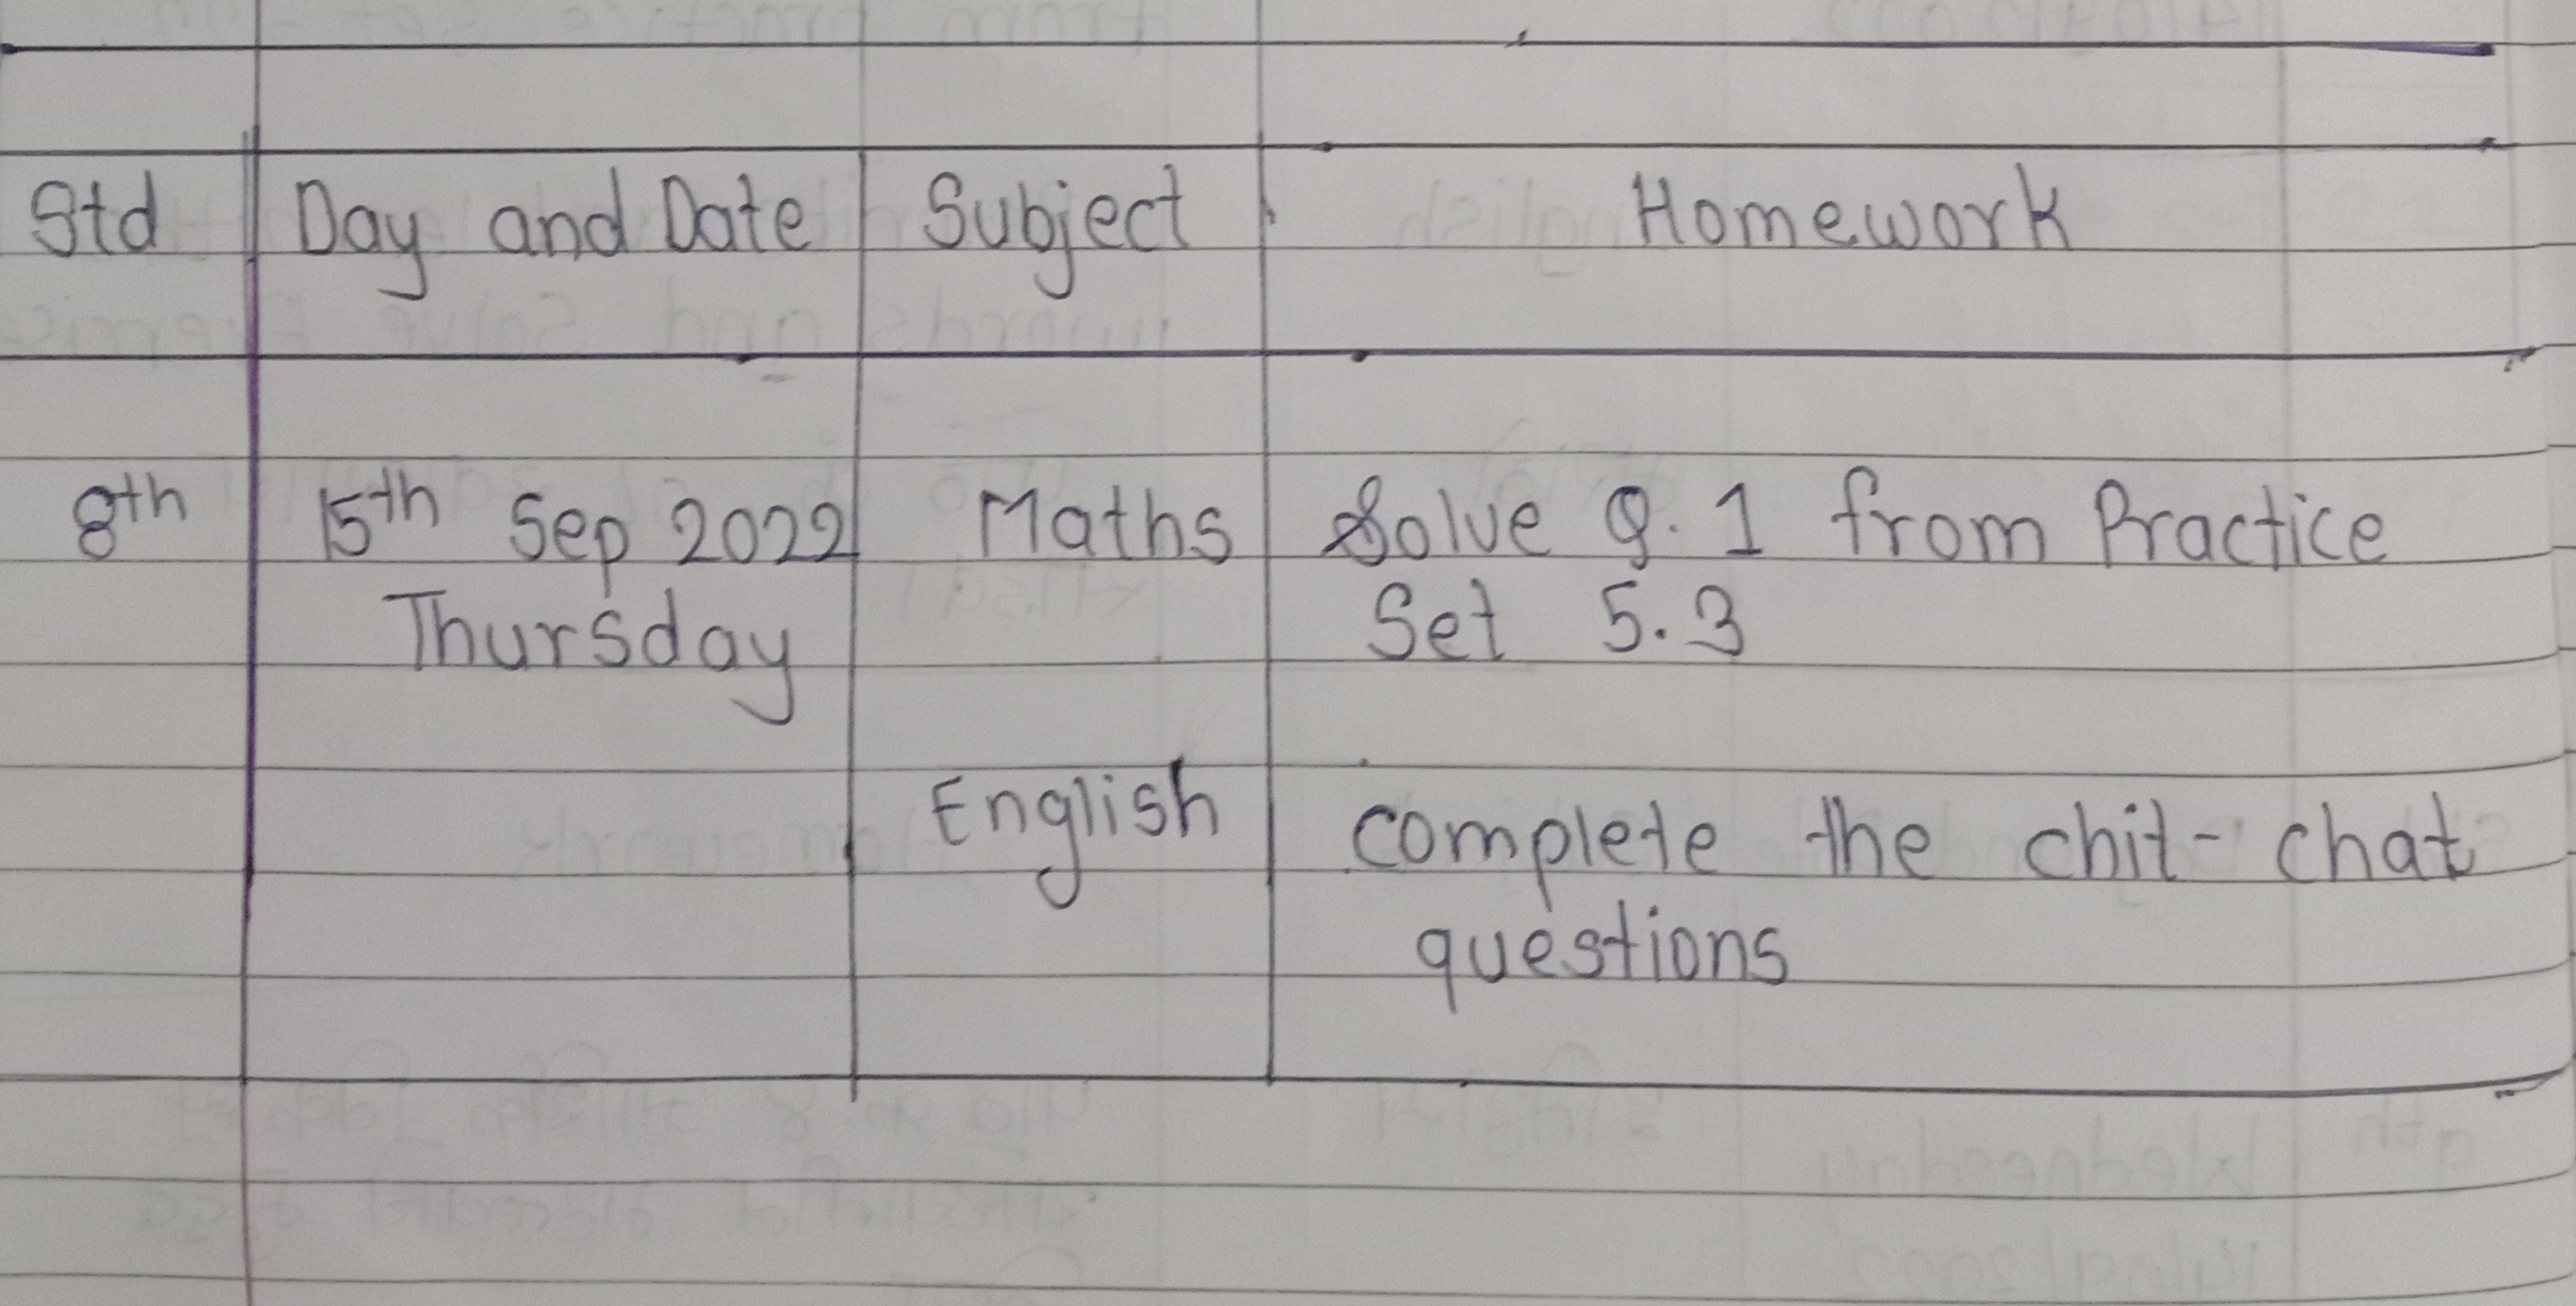 Std Day and Date Subject Homework
8th 15th Sep 2022 Maths Solve Q. 1 from Practice
Thursday Set 5.3
English complete the chit-chat
questions